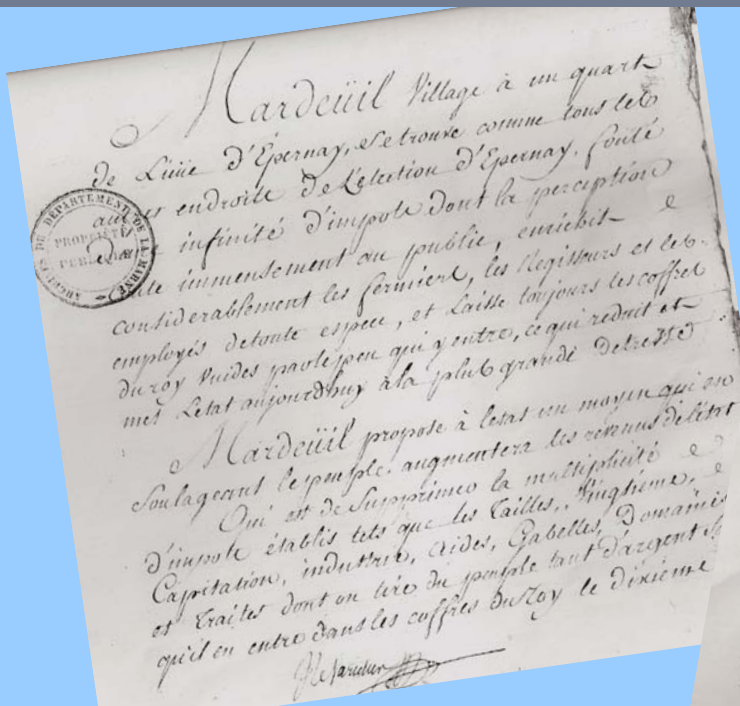 Mardeüil Village à un quart
de Lieüe D'Epernay, se trouve comme tous les
endroits De L'election D'Epernay,
infinité d'impots Dont la perception
immensement au public, enrichit
considerablement les fermiers, les Regisseurs et les
employés detoute espece, et Laisse toujours les coffres
du roy Vuides parlepeu qui y entre, ce qui reduit et
met L'etat aujourdhuy àla plus grande Detresse
Mardeüil propose à l'etat un moyen qui en
Soulageant le peuple augmentera les revenus de l'état
Qui est de Supprimer la multiplicité
D'impots établis tels que les Tailles, Vingtieme,
Capitation, industrie, Aides, Gabelles, Domaines
et Traites dont on tire du peuple tant d'argent
qu'il en entre Dans les coffres Du Roy le dixieme
ARCHIVES DU DÉPARTEMENT DE LA MARNE
PROPRIÉTÉ
PUBLIQUE